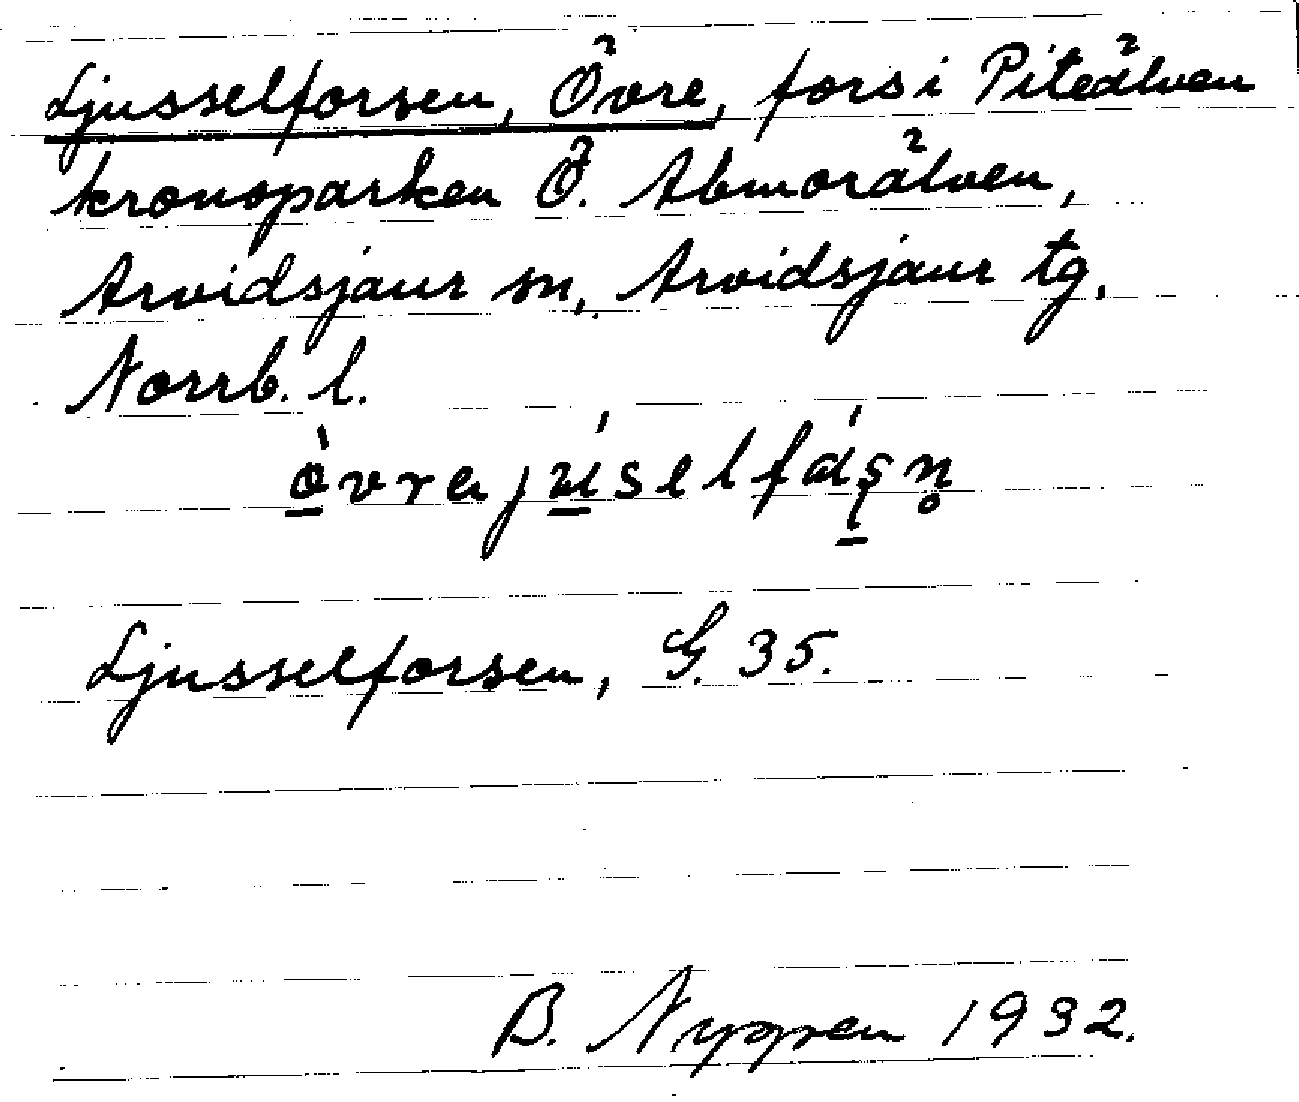 Ljusselforsen, Övre, fors i Piteälven
kronoparken Ö. Abmorälven,
Arvidsjaur sn, Arvidsjaur tg.
Norrb. l.
Ljusselforsen, G. 35.
B. Nygren 1932.